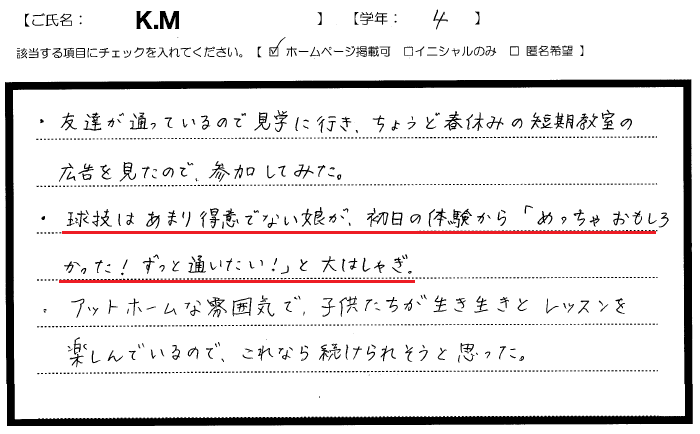 【ご氏名： K.M 】 【学年： 4 】
該当する項目にチェックを入れてください。【 ☑ ホームページ掲載可 □イニシャルのみ □ 匿名希望 】
・友達が通っているので見学に行き、ちょうど春休みの短期教室の
広告を見たので、参加してみた。
・球技はあまり得意でない娘が、初日の体験から「めっちゃおもしろ
かった！ずっと通いたい！」と大はしゃぎ。
・アットホームな雰囲気で、子供たちが生き生きとレッスンを
楽しんでいるので、これなら続けられそうと思った。